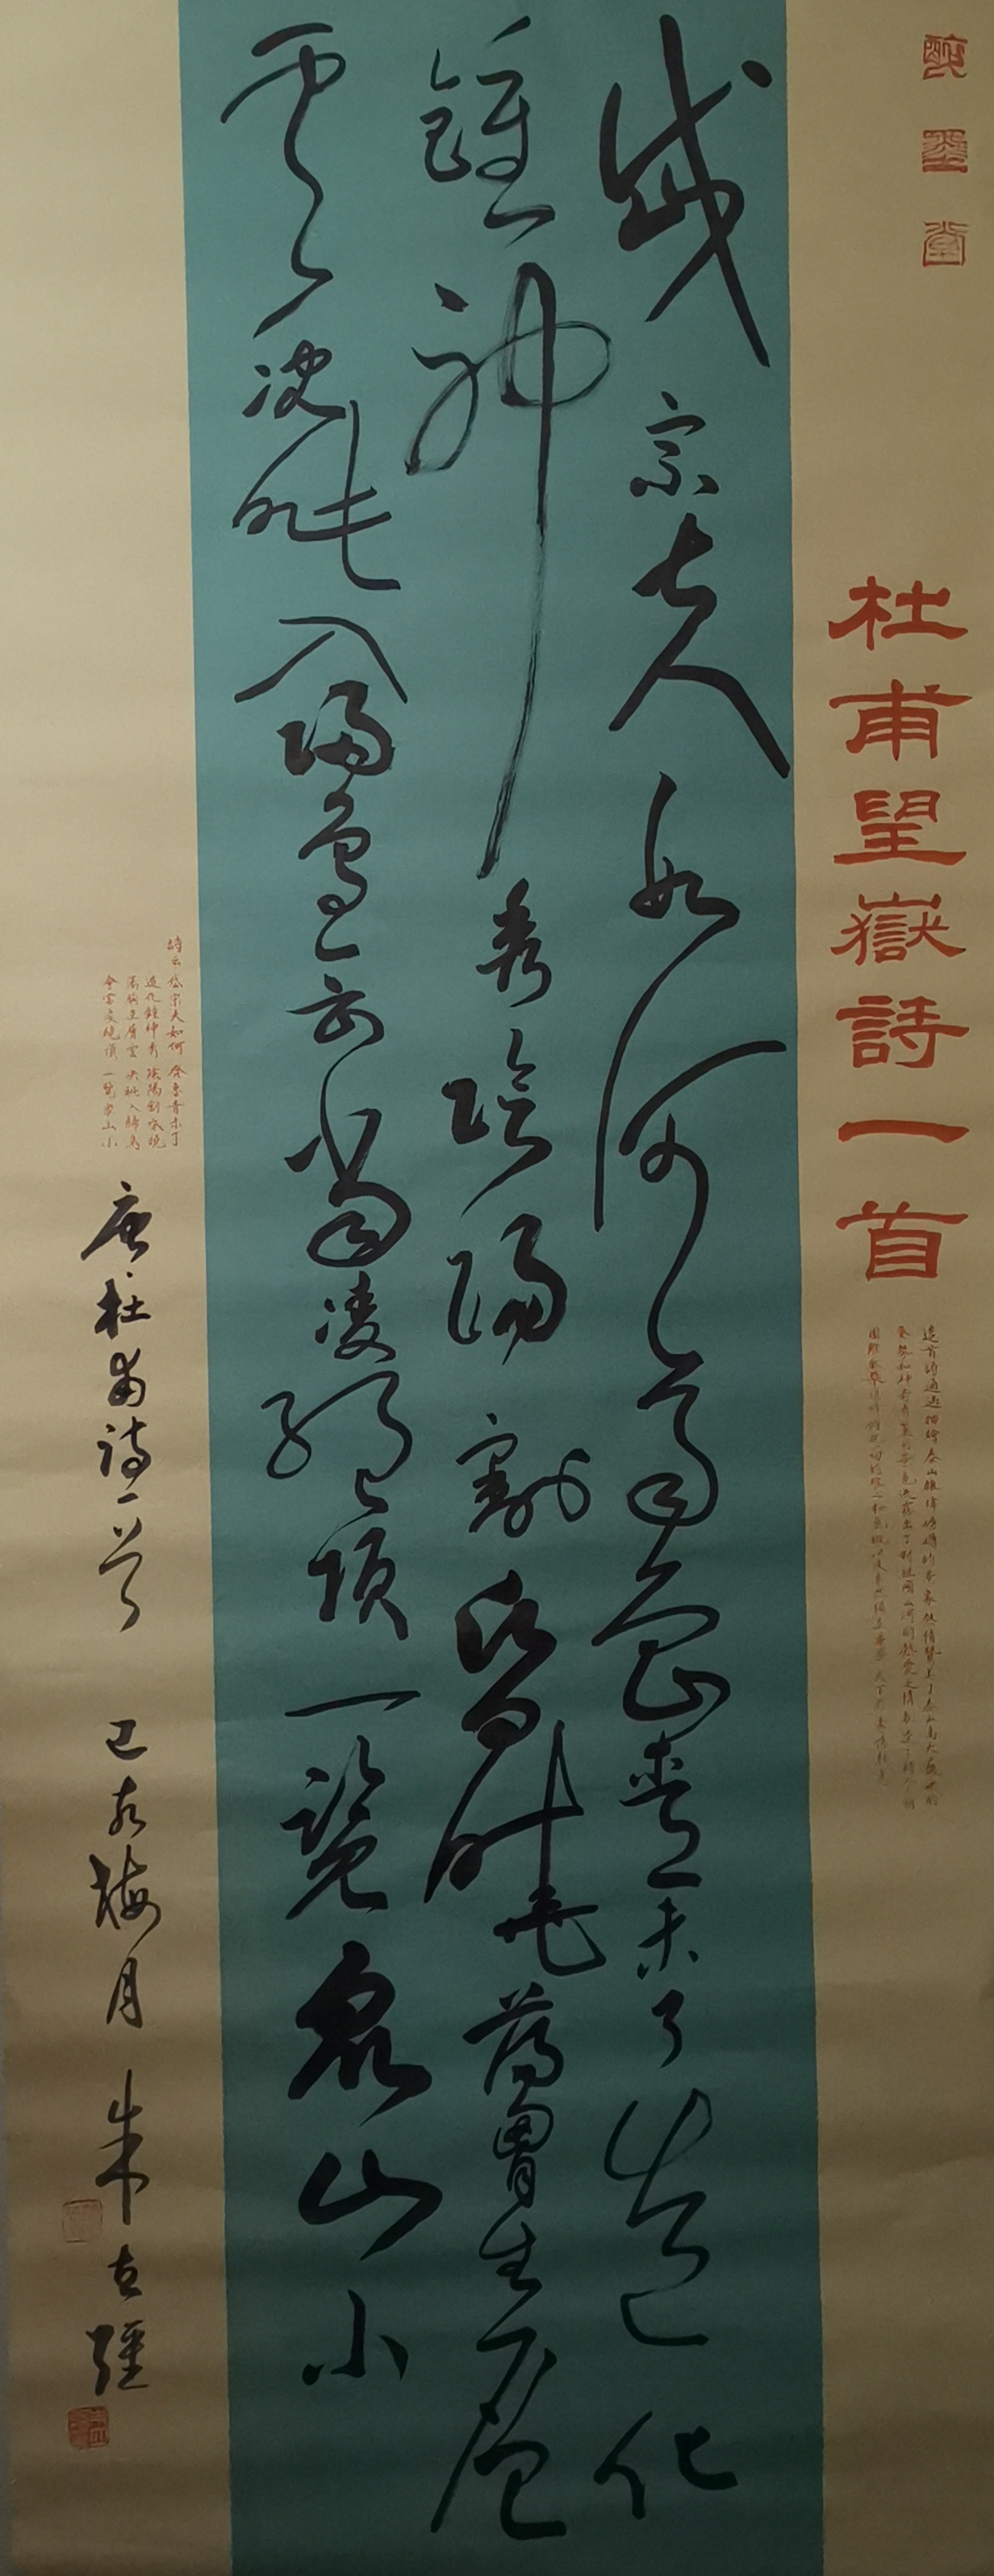 醉墨堂
杜甫望嶽詩一首
這首詩通過描繪泰山雄偉磅礴的
岱宗夫如何齊魯青未了造化
鍾神秀陰陽割昏曉蕩胸生層
雲決眥入歸鳥會當凌絕頂一覽衆山小
詩云 岱宗夫如何 齊魯青未了
造化鍾神秀 陰陽割昏曉
蕩胸生層雲 決眥入歸鳥
會當凌絕頂 一覽衆山小
唐杜甫詩一首 己亥梅月 朱